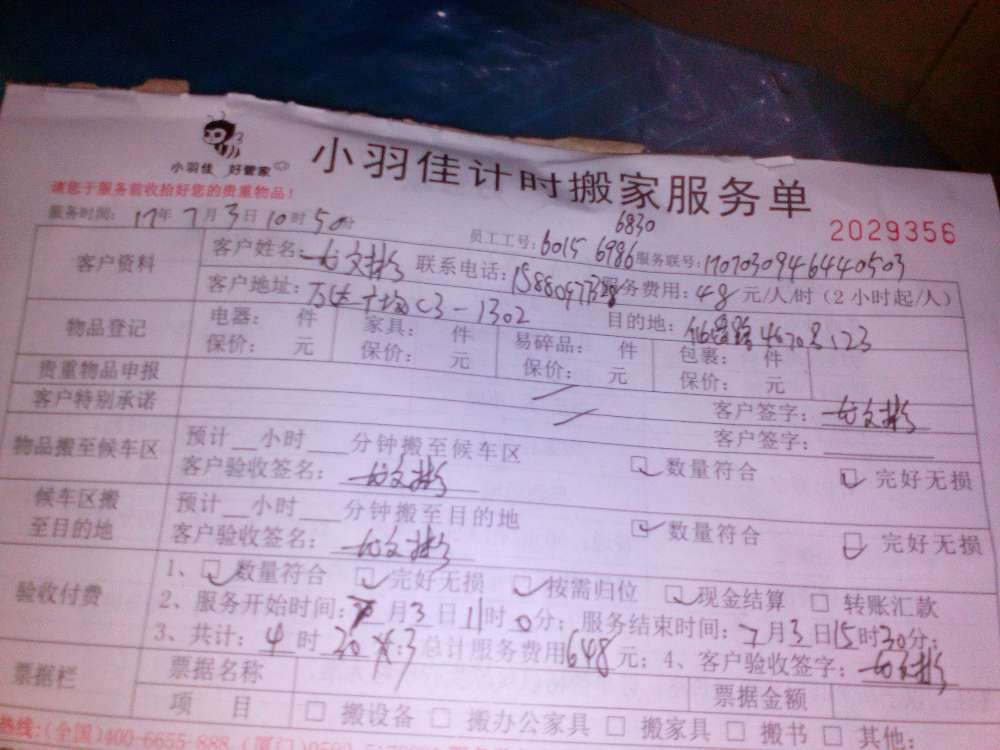 小羽佳 好管家
小羽佳计时搬家服务单
请您于服务前收拾好您的贵重物品!
2029356
服务时间: 17年7月3日10时50分
6830
员工工号: 6015 6986 服务联号: 1707030946440503
客户资料
客户姓名: 文彬 联系电话: 服务费用: 48元/人/时（2小时起/人）
客户地址: C3-1302 目的地:
物品登记
电器: 件 家具: 件 易碎品: 件 包裹: 件
保价: 元 保价: 元 保价: 元 保价: 元
贵重物品申报 客户签字: 文彬
客户特别承诺 客户签字:
物品搬至候车区
预计__小时___分钟搬至候车区 数量符合 完好无损
客户验收签名: 文彬
候车区搬至目的地
预计__小时___分钟搬至目的地 数量符合 完好无损
客户验收签名: 文彬
验收付费
1、数量符合 完好无损 按需归位 现金结算 转账汇款
2、服务开始时间: 7月3日11时0分; 服务结束时间: 7月3日15时30分;
3、共计: 4时30 总计服务费用648元; 4、客户验收签字: 文彬
票据栏
票据名称 票据金额
项 目 搬设备 搬办公家具 搬家具 搬书 其他:
热线:(全国)400-6655-888